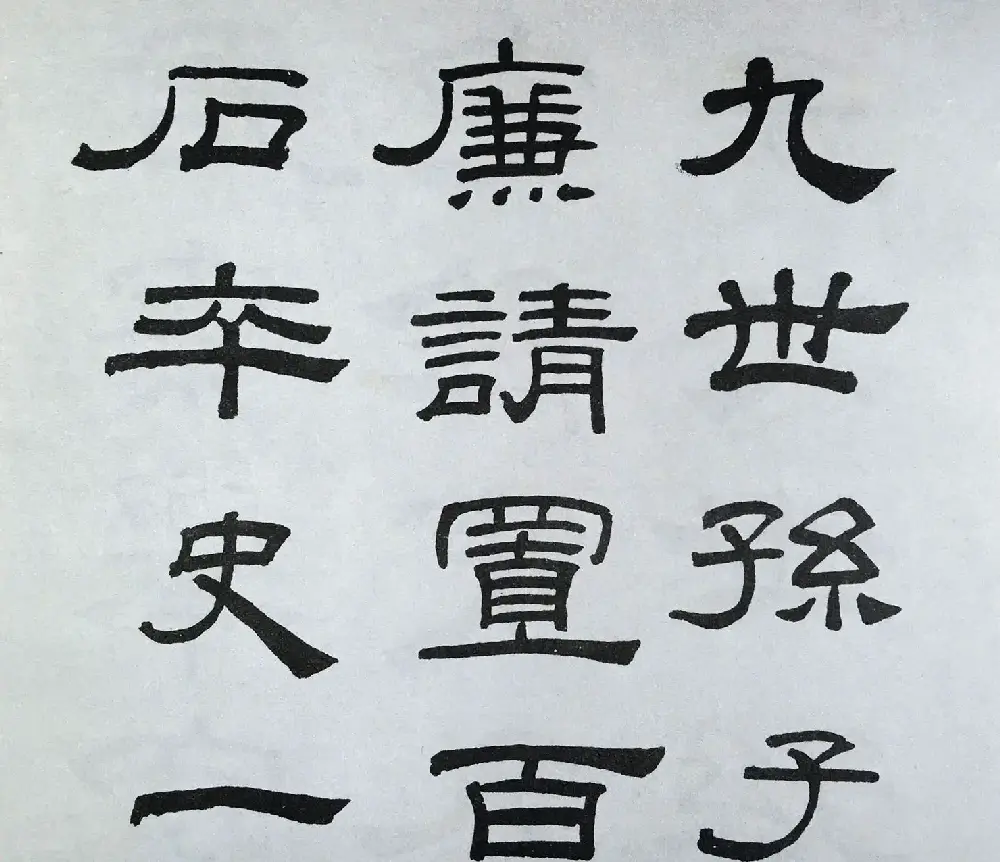 九世孫子
廉請置百
石卒史一